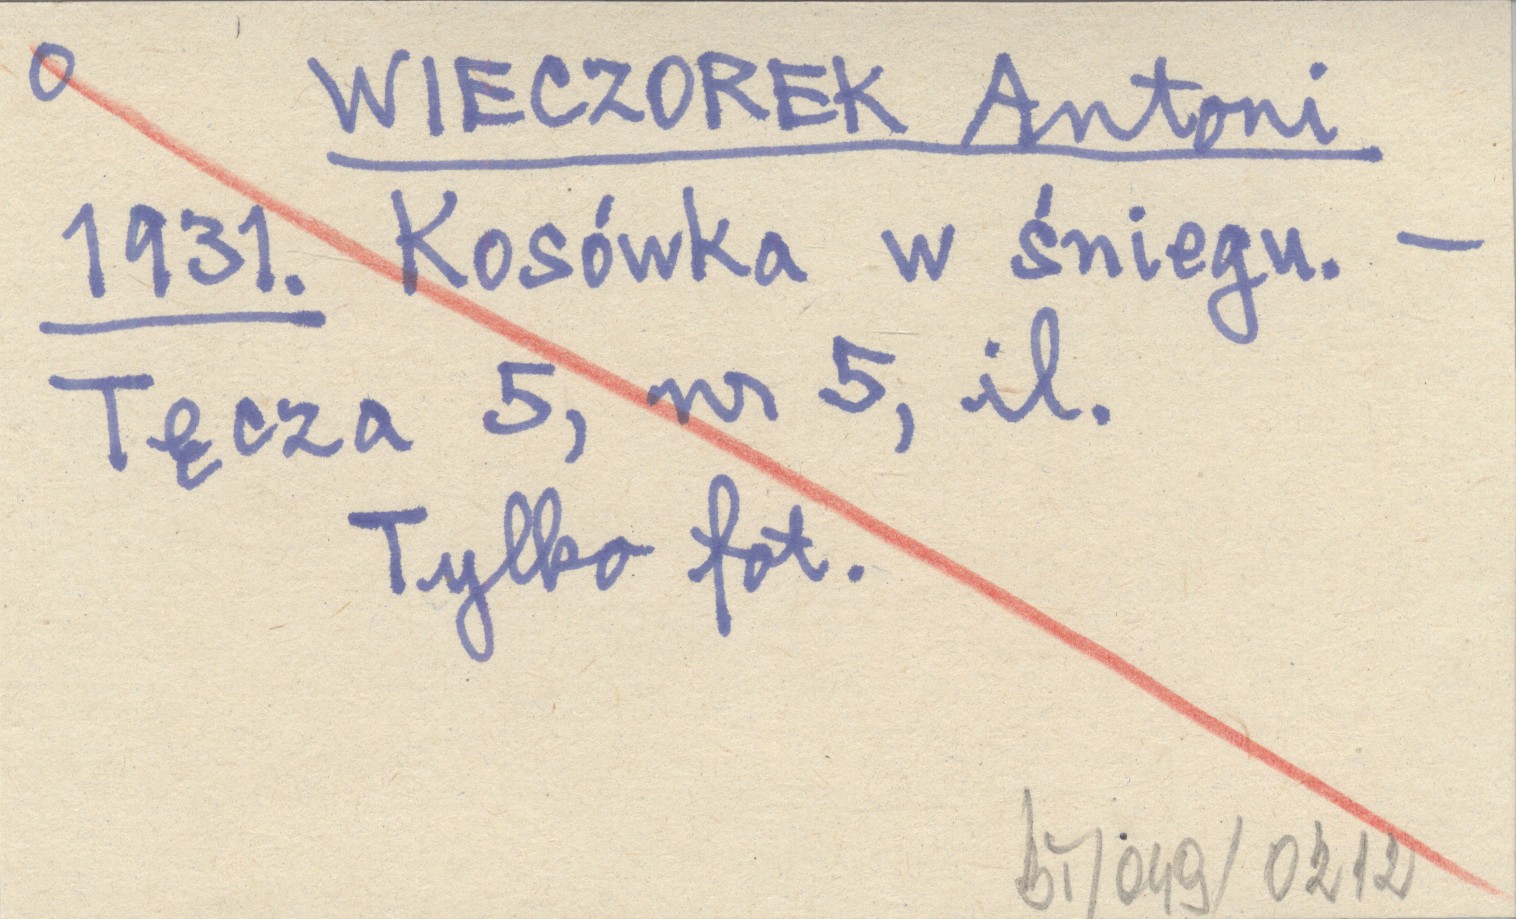 O WIECZOREK Antoni
1931. Kosówka w śniegu. —
Tęcza 5, nr 5, il.
Tylko fot.
/049/ 0212